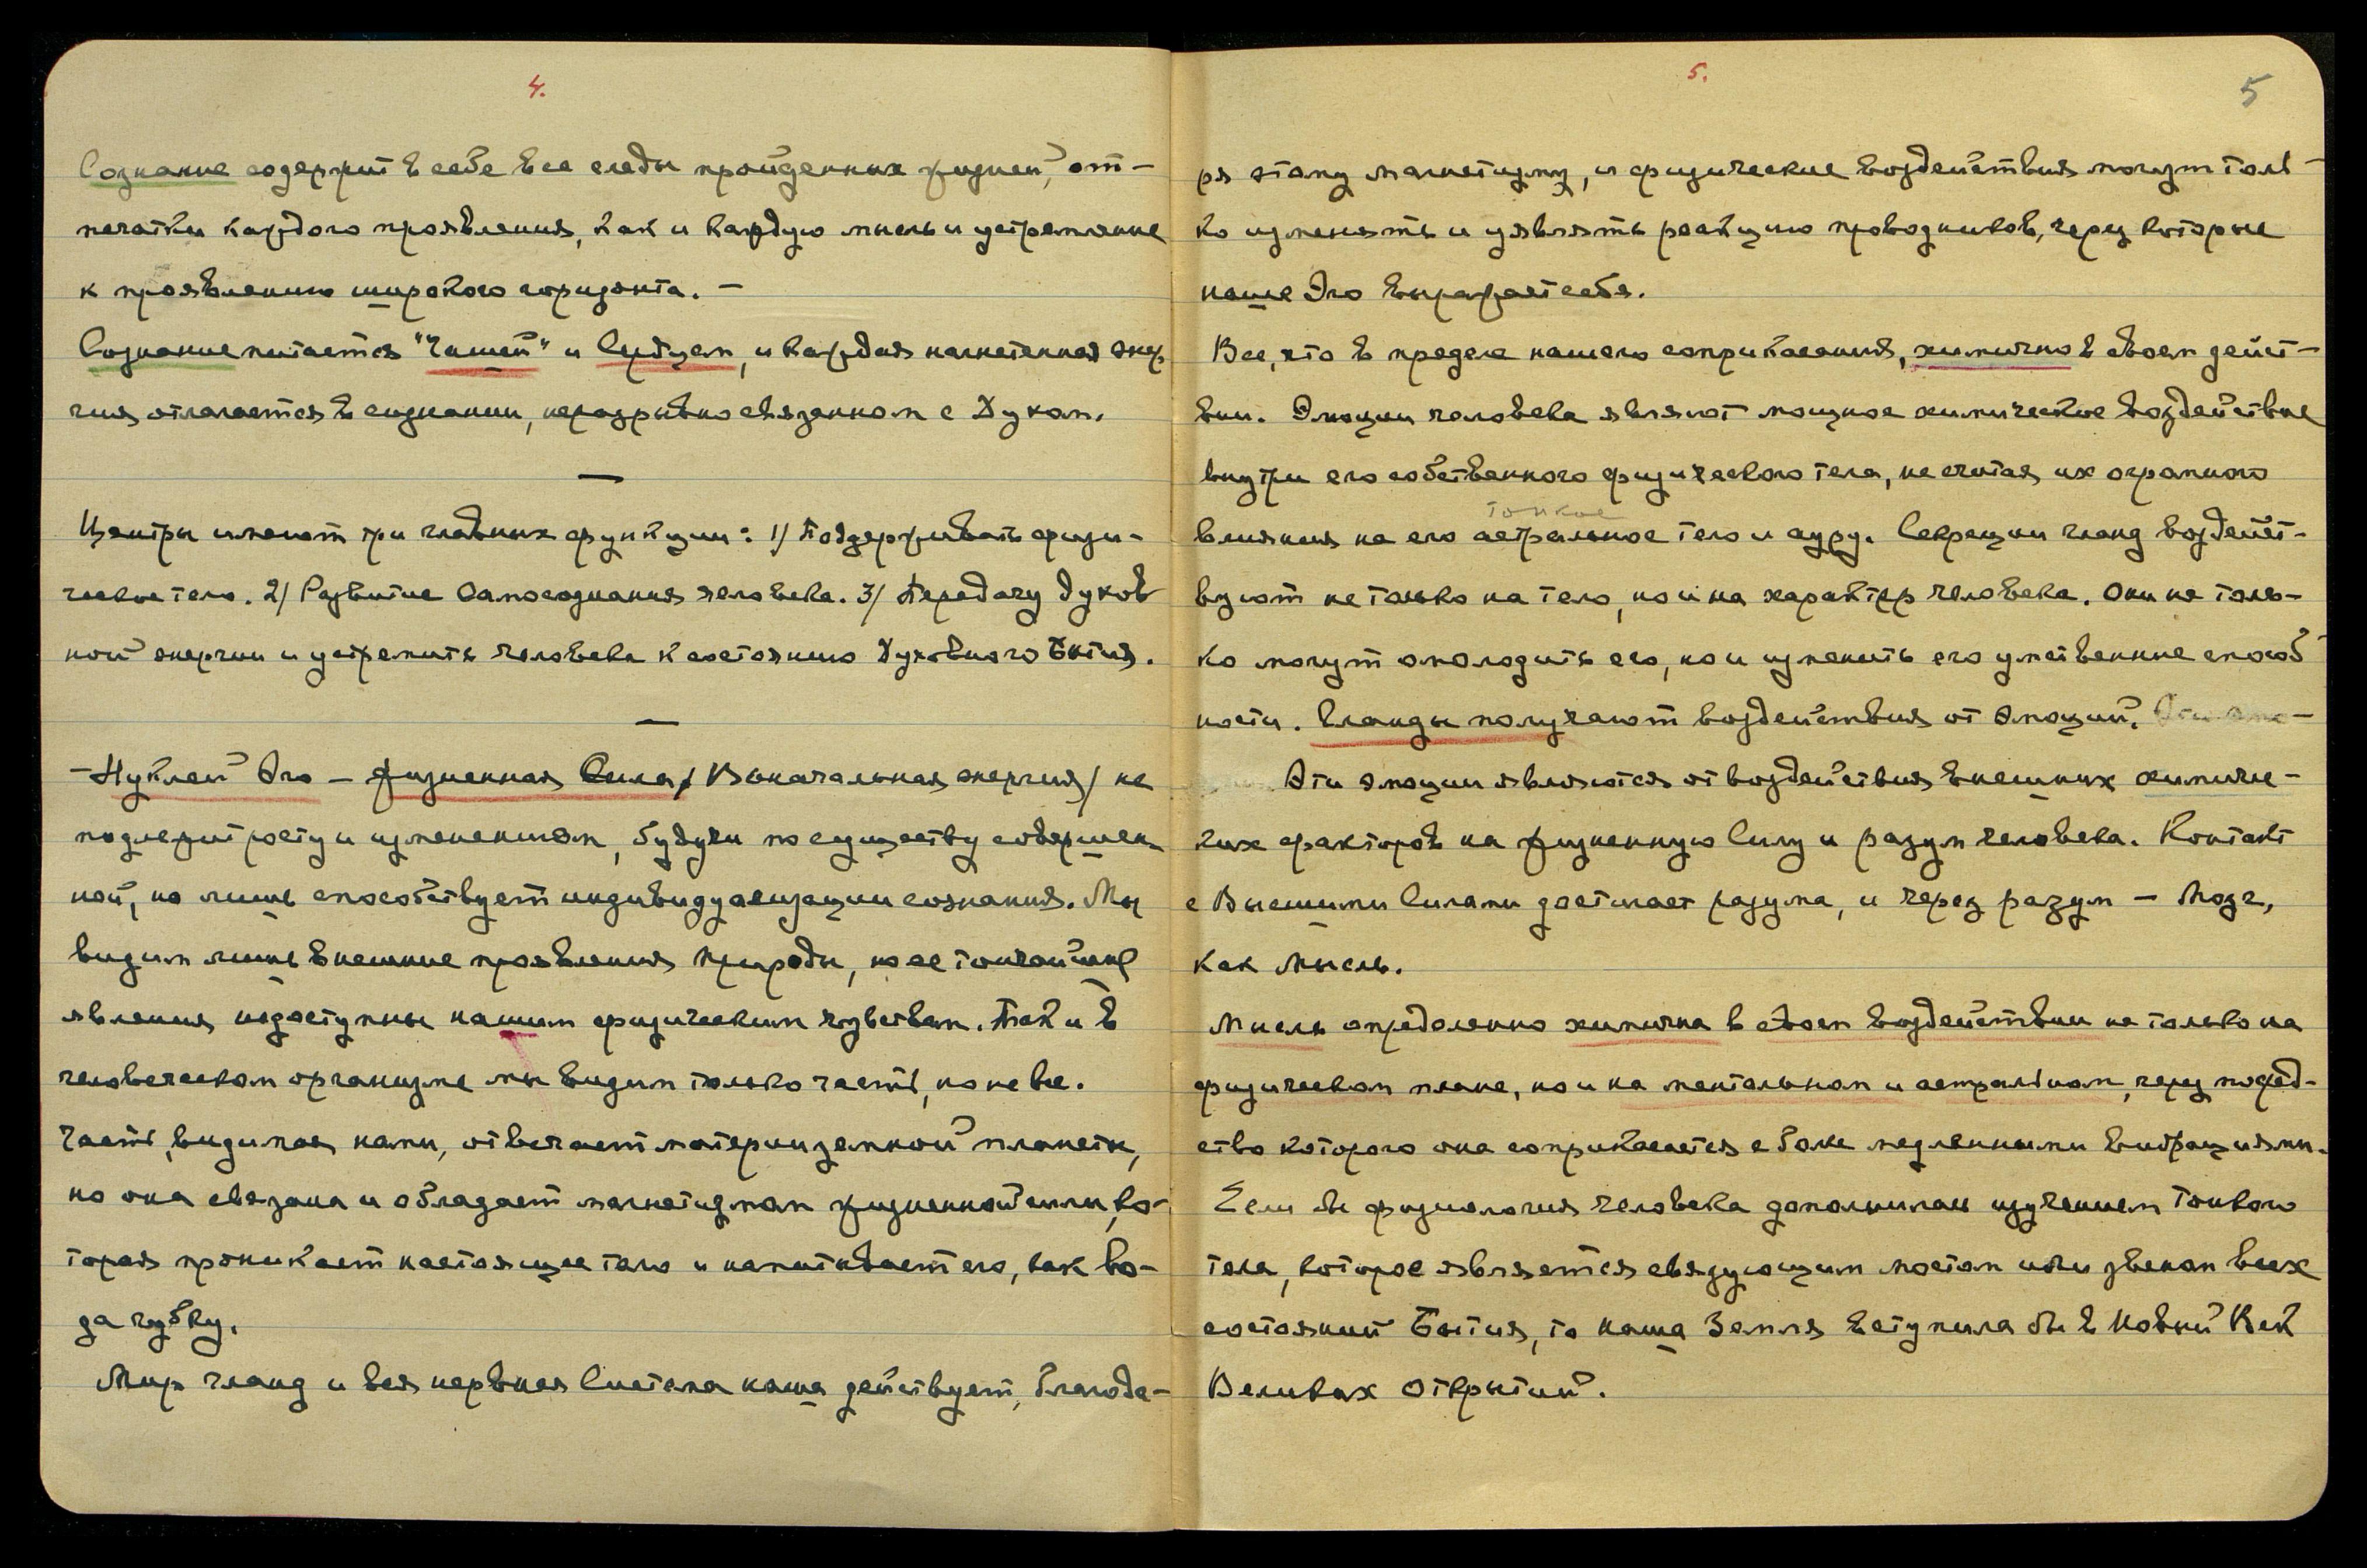 4.
Сознание содержит в себе все следы пройденных жизней, от-
печатки каждого проявления, как и каждую мысль и устремление
к проявлению широкого горизонта. —
Сознание питается "Чашей" и Сердцем, и каждая нагнетенная энер
гия отлагается в сознании, неразрывно связанном с Духом.
—
Центры имеют три главных функции: 1/ Поддерживать физи-
ческое тело. 2/ Развитие Самосознания человека. 3/ Передачу духов
ной энергии и устремить человека к состоянию Духовного Бытия.
—
—Нуклей Эго — жизненная Сила / Возначальная энергия/ не
подлежит росту и изменениям, будучи по существу совершен-
ной, но лишь способствует индивидуализации сознания. Мы
видим лишь внешние проявления природы, но ее тончайшие
явления недоступны нашим физическим чувствам. Так и в
человеческом организме мы видим только часть, но не все.
Часть, видимая нами, отвечает материи земной планеты,
но она связана и обладает магнетизмом жизненной силы, ко-
торая проникает настоящее тело и напитывает его, как во-
да губку.
Мир гланд и вся нервная Система наша действует, благода-
5.
5
ря этому магнетизму, и физические воздействия могут толь-
ко изменять и уявлять реакцию проводников, через которые
наше Эго выражает себя.
Все, что в пределе нашего соприкасания, химично в своем дейст-
вии. Эмоции человека являют мощное химическое воздействие
внутри его собственного физического тела, не считая их огромного
тонкое
влияния на его астральное тело и ауру. Секреции гланд воздейст-
вуют не только на тело, но и на характер человека. Они не толь-
ко могут омолодить его, но и изменить его умственные способ
ности. Гланды получают воздействия от эмоций.
Эти эмоции являются от воздействия внешних химиче-
ких факторов на жизненную Силу и разум человека. Контакт
с Высшими Силами достигает разума, и через разум — Мозг,
как Мысль.
Мысль определенно химична в своем воздействии не только на
физическом плане, но и на ментальном и астральном, через посред-
ство которого она соприкасается с более медленными вибрациями.
Если бы физиология человека дополнилась изучением Тонкого
тела, которое является связующим мостом или звеном всех
состояний Бытия, то наша Земля вступила бы в Новый Век
Великих Открытий.